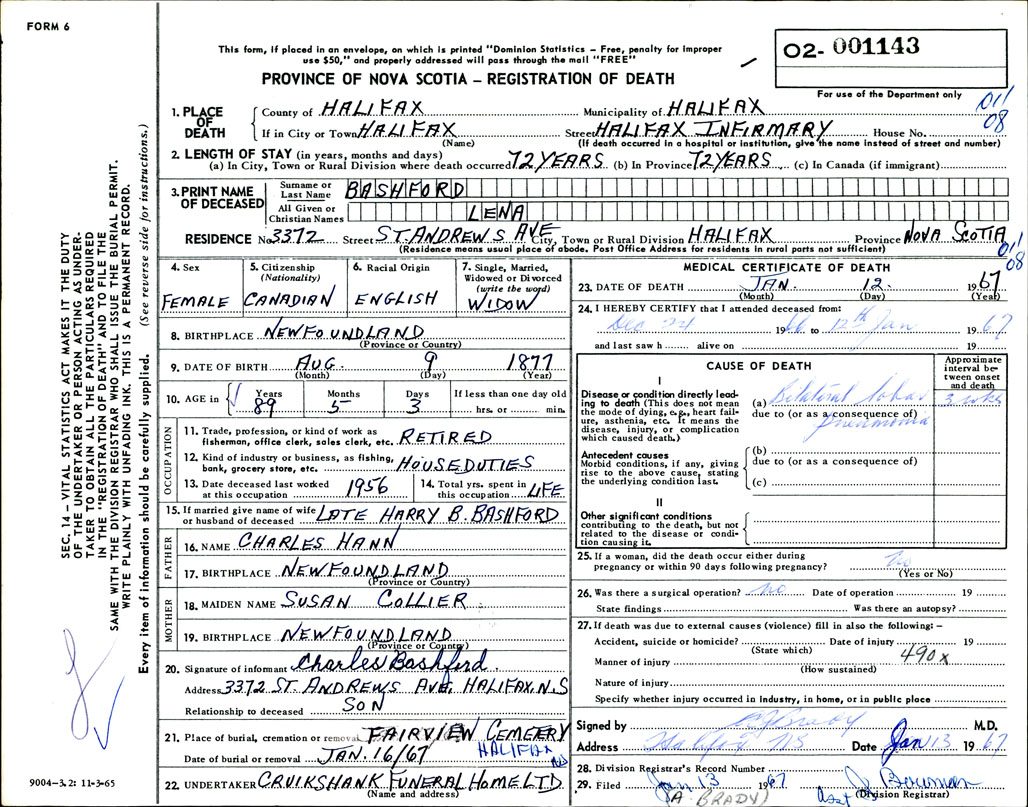 FORM 6
This form, if placed in an envelope, on which is printed "Dominion Statistics – Free, penalty for improper
use $50," and properly addressed will pass through the mail "FREE"
PROVINCE OF NOVA SCOTIA – REGISTRATION OF DEATH
02- 001143
For use of the Department only
011
08
1. PLACE OF DEATH
County of HALIFAX Municipality of HALIFAX
If in City or Town HALIFAX Street HALIFAX INFIRMARY House No.
(Name) (If death occurred in a hospital or institution, give the name instead of street and number)
2. LENGTH OF STAY (in years, months and days)
(a) In City, Town or Rural Division where death occurred 72 YEARS (b) In Province 72 YEARS (c) In Canada (if immigrant)
3. PRINT NAME OF DECEASED
Surname or Last Name BASHFORD
All Given or Christian Names LENA
RESIDENCE No 3372 Street ST. ANDREWS AVE City, Town or Rural Division HALIFAX Province NOVA SCOTIA
(Residence means usual place of abode. Post Office Address for residents in rural parts not sufficient)
011
08
4. Sex
FEMALE
5. Citizenship (Nationality)
CANADIAN
6. Racial Origin
ENGLISH
7. Single, Married, Widowed or Divorced (write the word)
WIDOW
8. BIRTHPLACE NEWFOUNDLAND
(Province or Country)
9. DATE OF BIRTH AUG. 9 1877
(Month) (Day) (Year)
10. AGE in Years Months Days If less than one day old
89 5 3 hrs. or min.
OCCUPATION
11. Trade, profession, or kind of work as
fisherman, office clerk, sales clerk, etc. RETIRED
12. Kind of industry or business, as fishing,
bank, grocery store, etc. HOUSEDUTIES
13. Date deceased last worked
at this occupation 1956
14. Total yrs. spent in
this occupation LIFE
15. If married give name of wife
or husband of deceased LATE HARRY B. BASHFORD
FATHER
16. NAME CHARLES HANN
17. BIRTHPLACE NEWFOUNDLAND
(Province or Country)
MOTHER
18. MAIDEN NAME SUSAN COLLIER
19. BIRTHPLACE NEWFOUNDLAND
(Province or Country)
20. Signature of informant Charles Bashford
Address 3372 ST. ANDREWS AVE, HALIFAX, N.S
Relationship to deceased SON
21. Place of burial, cremation or removal FAIRVIEW CEMETERY
HALIFAX NS
Date of burial or removal JAN. 16/67
22. UNDERTAKER CRUIKSHANK FUNERAL HOME LTD
(Name and address)
MEDICAL CERTIFICATE OF DEATH
23. DATE OF DEATH JAN. 12. 1967
(Month) (Day) (Year)
24. I HEREBY CERTIFY that I attended deceased from:
Dec 24 1966 to 12th Jan 1967
and last saw h alive on 19
CAUSE OF DEATH
Approximate interval between onset and death
I
Disease or condition directly leading to death (This does not mean
the mode of dying, e.g., heart failure, asthenia, etc. It means the
disease, injury, or complication
which caused death.)
(a) Bilateral lobar 3 wks
due to (or as a consequence of)
pneumonia
Antecedent causes
Morbid conditions, if any, giving
rise to the above cause, stating
the underlying condition last.
(b)
due to (or as a consequence of)
(c)
II
Other significant conditions
contributing to the death, but not
related to the disease or condition causing it.
25. If a woman, did the death occur either during
pregnancy or within 90 days following pregnancy? no
(Yes or No)
26. Was there a surgical operation? no Date of operation 19
State findings Was there an autopsy?
27. If death was due to external causes (violence) fill in also the following: –
Accident, suicide or homicide? Date of injury 19
(State which)
490x
Manner of injury
(How sustained)
Nature of injury
Specify whether injury occurred in industry, in home, or in public place
Signed by A J Brady M.D.
Address Halifax NS Date Jan 13 1967
28. Division Registrar's Record Number
29. Filed Jan 13 1967 Asst J. Bowman
(A. BRADY) (Division Registrar)
SEC. 14 – VITAL STATISTICS ACT MAKES IT THE DUTY
OF THE UNDERTAKER OR PERSON ACTING AS UNDER-
TAKER TO OBTAIN ALL THE PARTICULARS REQUIRED
IN THE "REGISTRATION OF DEATH" AND TO FILE THE
SAME WITH THE DIVISION REGISTRAR WHO SHALL ISSUE THE BURIAL PERMIT.
WRITE PLAINLY WITH UNFADING INK. THIS IS A PERMANENT RECORD.
Every item of information should be carefully supplied. (See reverse side for instructions.)
9004–3.2: 11-3-65